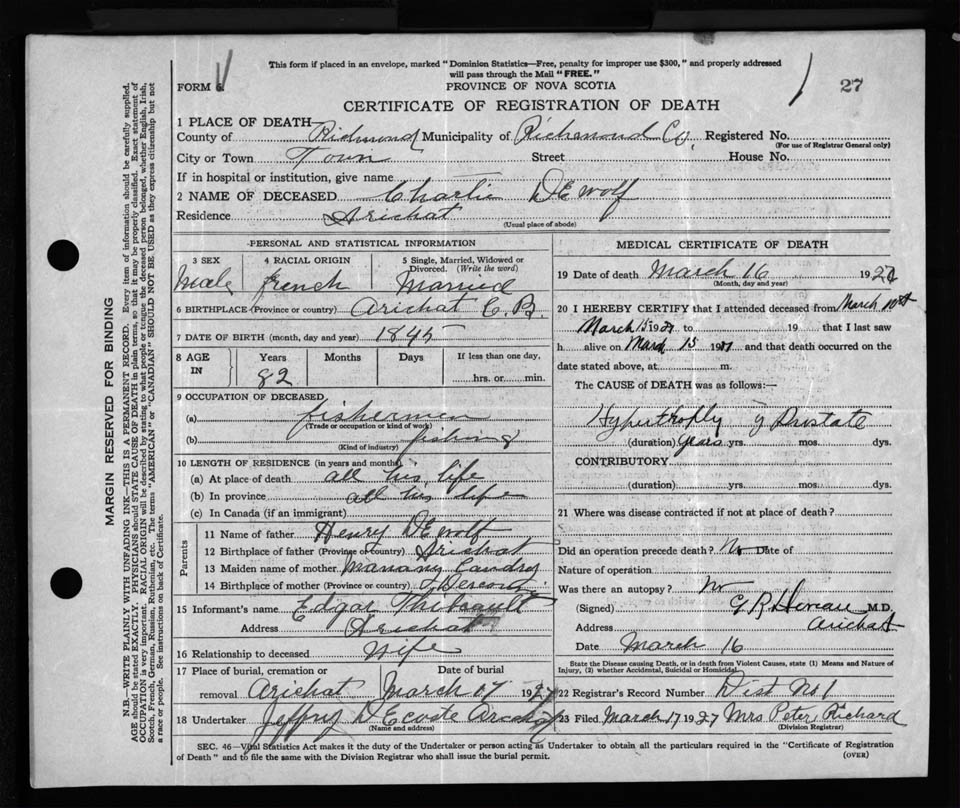 This form if placed in an envelope, marked "Dominion Statistics—Free, penalty for improper use $300," and properly addressed
will pass through the Mail "FREE."
FORM
27
PROVINCE OF NOVA SCOTIA
CERTIFICATE OF REGISTRATION OF DEATH
1 PLACE OF DEATH—
County of Richmond Municipality of Richmond Co. Registered No.
(For use of Registrar General only)
City or Town Town Street House No.
If in hospital or institution, give name
2 NAME OF DECEASED Charlie DEwolf
Residence Arichat
(Usual place of abode)
PERSONAL AND STATISTICAL INFORMATION
3 SEX 4 RACIAL ORIGIN 5 Single, Married, Widowed or
Divorced. (Write the word)
Male french Married
6 BIRTHPLACE (Province or country) Arichat C.B.
7 DATE OF BIRTH (month, day and year) 1845
8 AGE IN Years Months Days If less than one day,
82 hrs. or min.
9 OCCUPATION OF DECEASED
(a) fishermen
(Trade or occupation or kind of work)
(b) fishing
(Kind of industry)
10 LENGTH OF RESIDENCE (in years and months)
(a) At place of death all his life
(b) In province all his life
(c) In Canada (if an immigrant)
Parents
11 Name of father Henry DEwolf
12 Birthplace of father (Province or country) Arichat
13 Maiden name of mother Landry
14 Birthplace of mother (Province or country)
15 Informant's name Edgar Thibeault
Address Arichat
16 Relationship to deceased Wife
17 Place of burial, cremation or Date of burial
removal Arichat March 17 1927
18 Undertaker Jeffry DEcoste Arichat
(Name and address)
MEDICAL CERTIFICATE OF DEATH
19 Date of death March 16 1927
(Month, day and year)
20 I HEREBY CERTIFY that I attended deceased from March 10th
March 15 1927 to 19 that I last saw
h alive on March 15 1927 and that death occurred on the
date stated above, at m.
The CAUSE of DEATH was as follows:—
Hypertrophy of Prostate
(duration) Years yrs. mos. dys.
CONTRIBUTORY
(duration) yrs. mos. dys.
21 Where was disease contracted if not at place of death?
Did an operation precede death? No Date of
Nature of operation
Was there an autopsy? No
(Signed) M.D.
Address Arichat
Date March 16
State the Disease causing Death, or in death from Violent Causes, state (1) Means and Nature of
Injury, (2) whether Accidental, Suicidal or Homicidal.
22 Registrar's Record Number Dist No 1
23 Filed March 17 1927 Mrs Peter Richard
(Division Registrar)
SEC. 46—Vital Statistics Act makes it the duty of the Undertaker or person acting as Undertaker to obtain all the particulars required in the "Certificate of Registration
of Death" and to file the same with the Division Registrar who shall issue the burial permit.
(OVER)
MARGIN RESERVED FOR BINDING
N.B.—WRITE PLAINLY WITH UNFADING INK—THIS IS A PERMANENT RECORD. Every item of information should be carefully supplied.
AGE should be stated EXACTLY. PHYSICIANS should STATE CAUSE OF DEATH in plain terms, so that it may be properly classified. Exact statement of
OCCUPATION is very important. RACIAL ORIGIN will be described by stating to what people or tongue the deceased person belonged, whether English, Irish,
Scotch, French, German, Russian, Ruthenian, etc. The terms "AMERICAN" or "CANADIAN" SHOULD NOT BE USED as they express citizenship but not
a race or people. See instructions on back of Certificate.